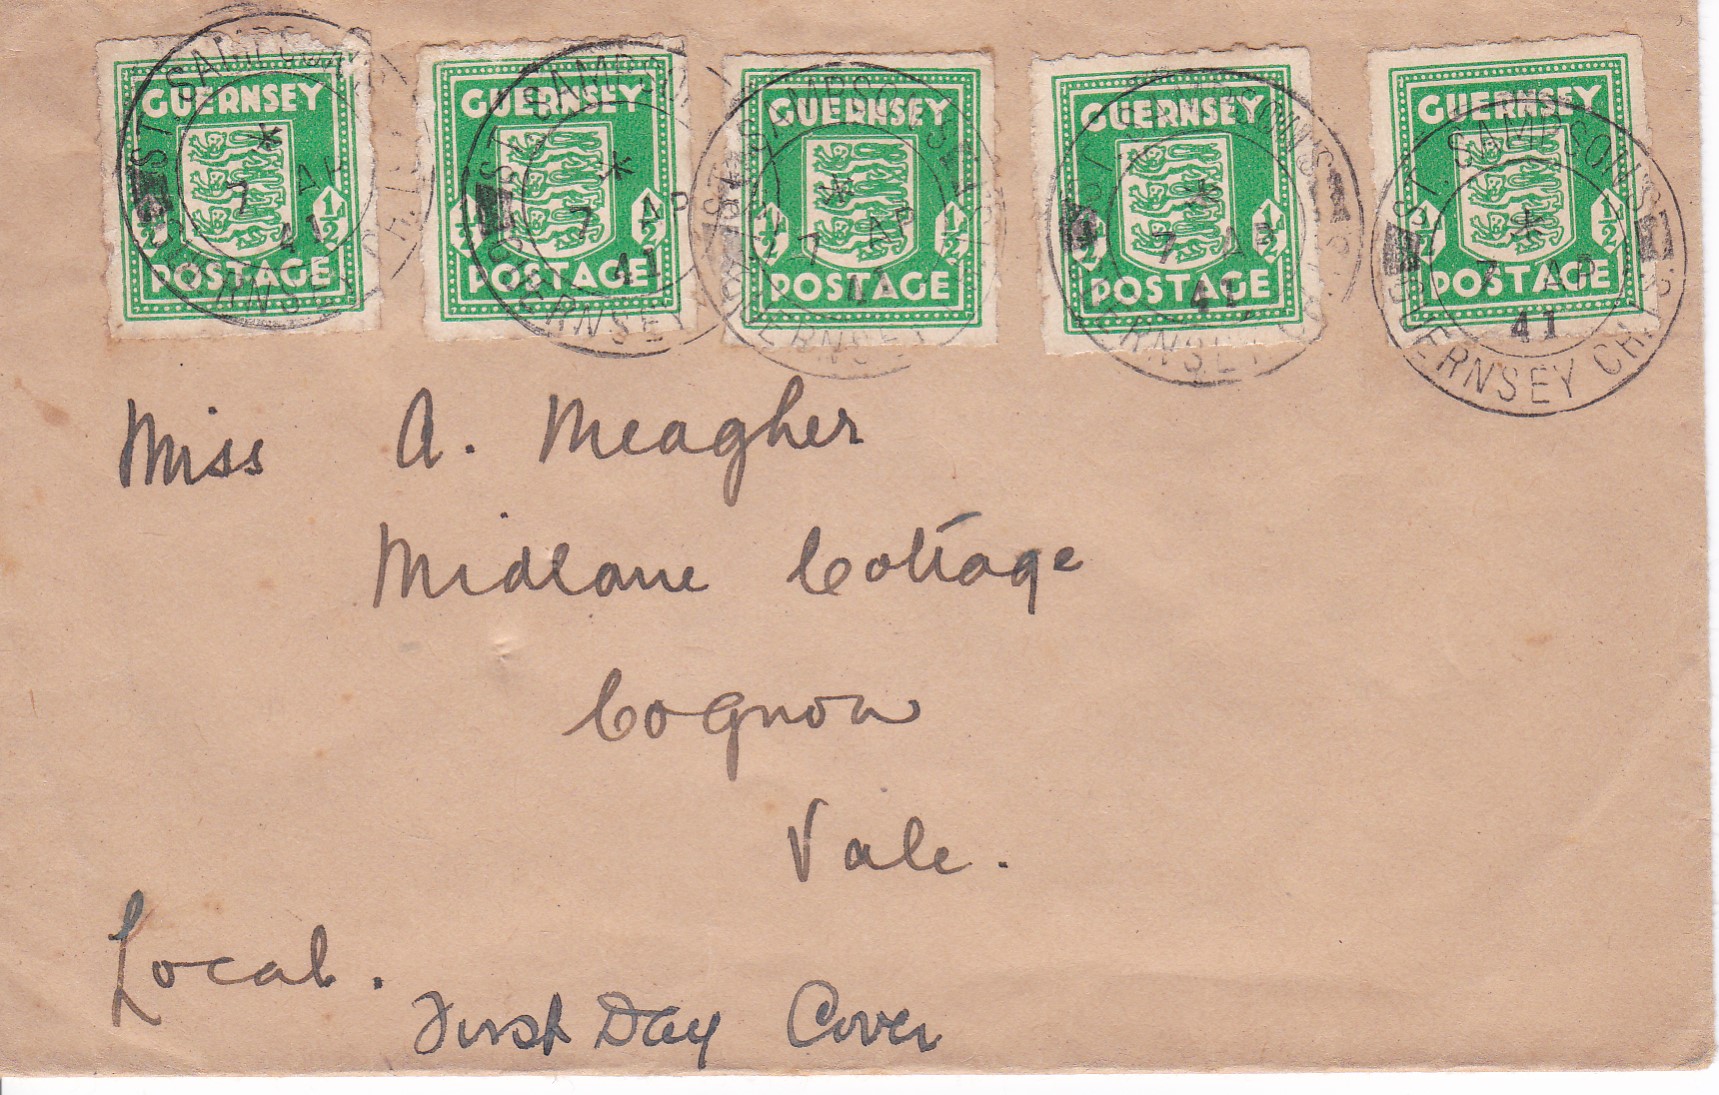 GUERNSEY GUERNSEY GUERNSEY GUERNSEY GUERNSEY
1/2 1/2 1/2 1/2 1/2 1/2 1/2 1/2 1/2 1/2
POSTAGE POSTAGE POSTAGE POSTAGE POSTAGE
ST. SAMPSON'S GUERNSEY CH. IS.
* 7 AP 41
ST. SAMPSON'S GUERNSEY
* 7 AP 41
ST. SAMPSON'S GUERNSEY
* 7 AP 41
ST. SAMPSON'S GUERNSEY CH.
* 7 AP 41
ST. SAMPSON'S GUERNSEY CH.
* 7 AP 41
Miss A. Meagher
Midlane Cottage
Cognon
Vale.
Local.
First Day Cover